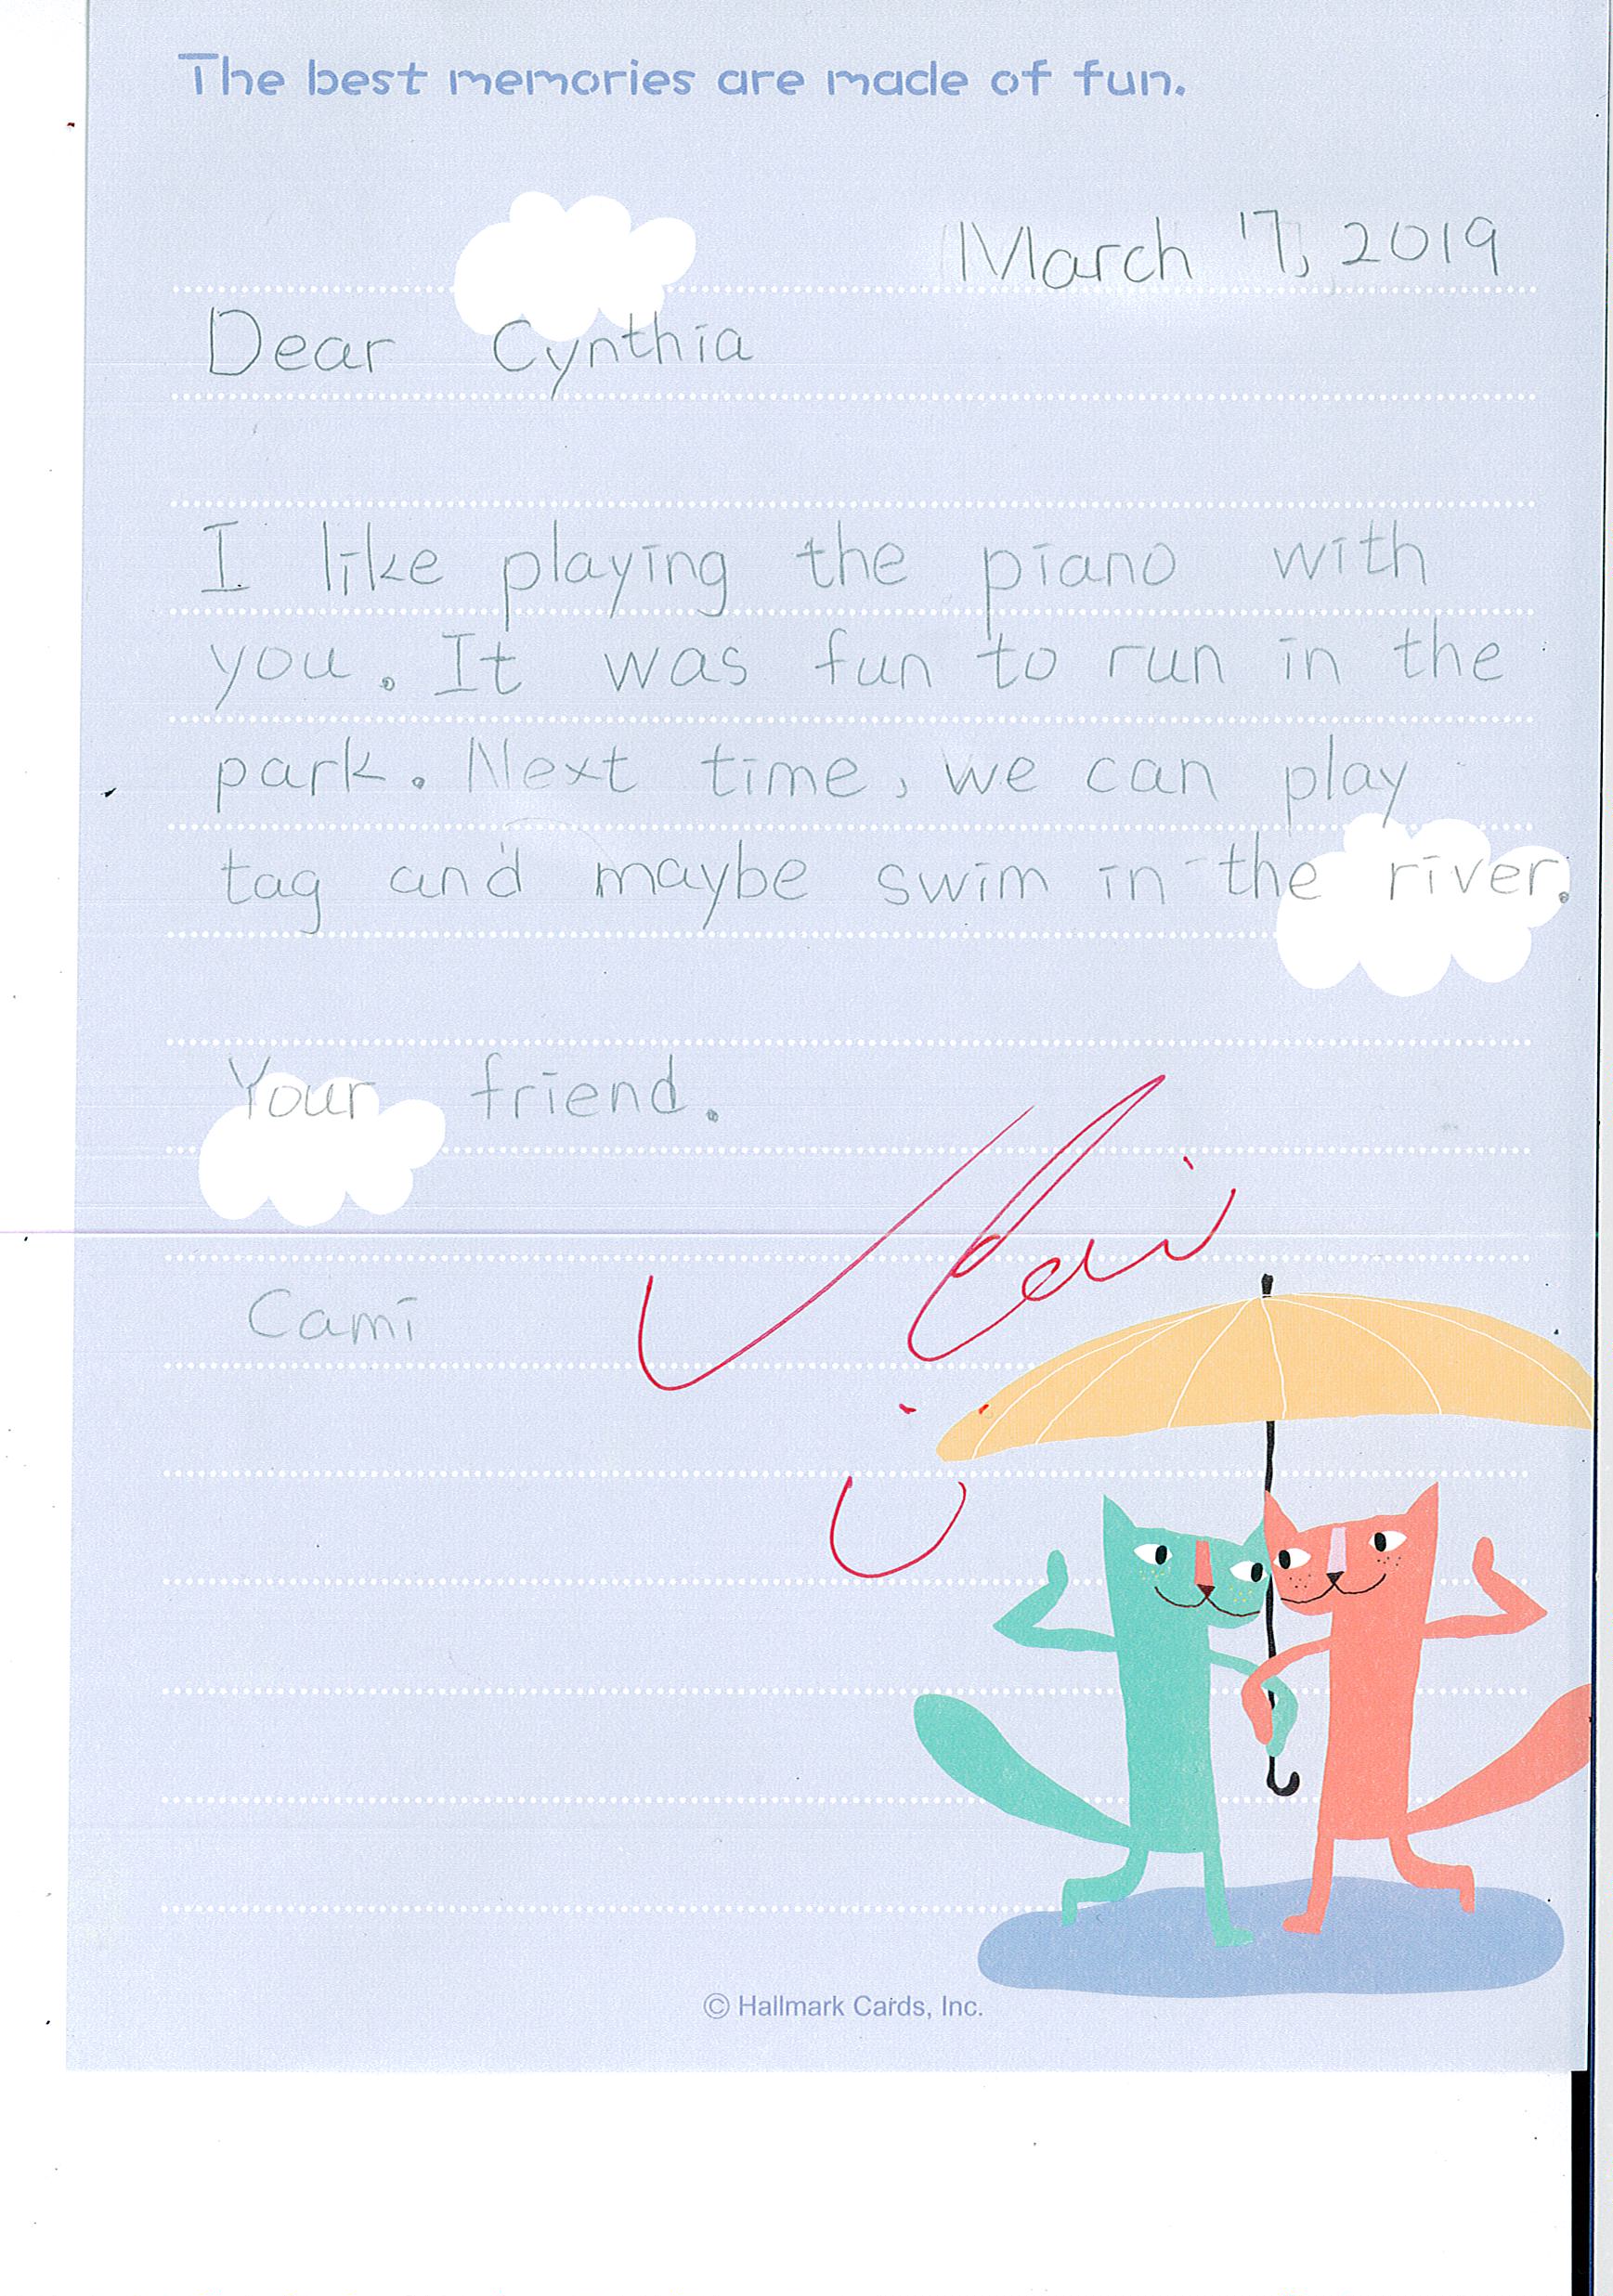 The best memories are made of fun.
March 7, 2019
Dear Cynthia
I like playing the piano with
you. It was fun to run in the
park. Next time, we can play
tag and maybe swim in the river.
Your friend.
Cami
© Hallmark Cards, Inc.